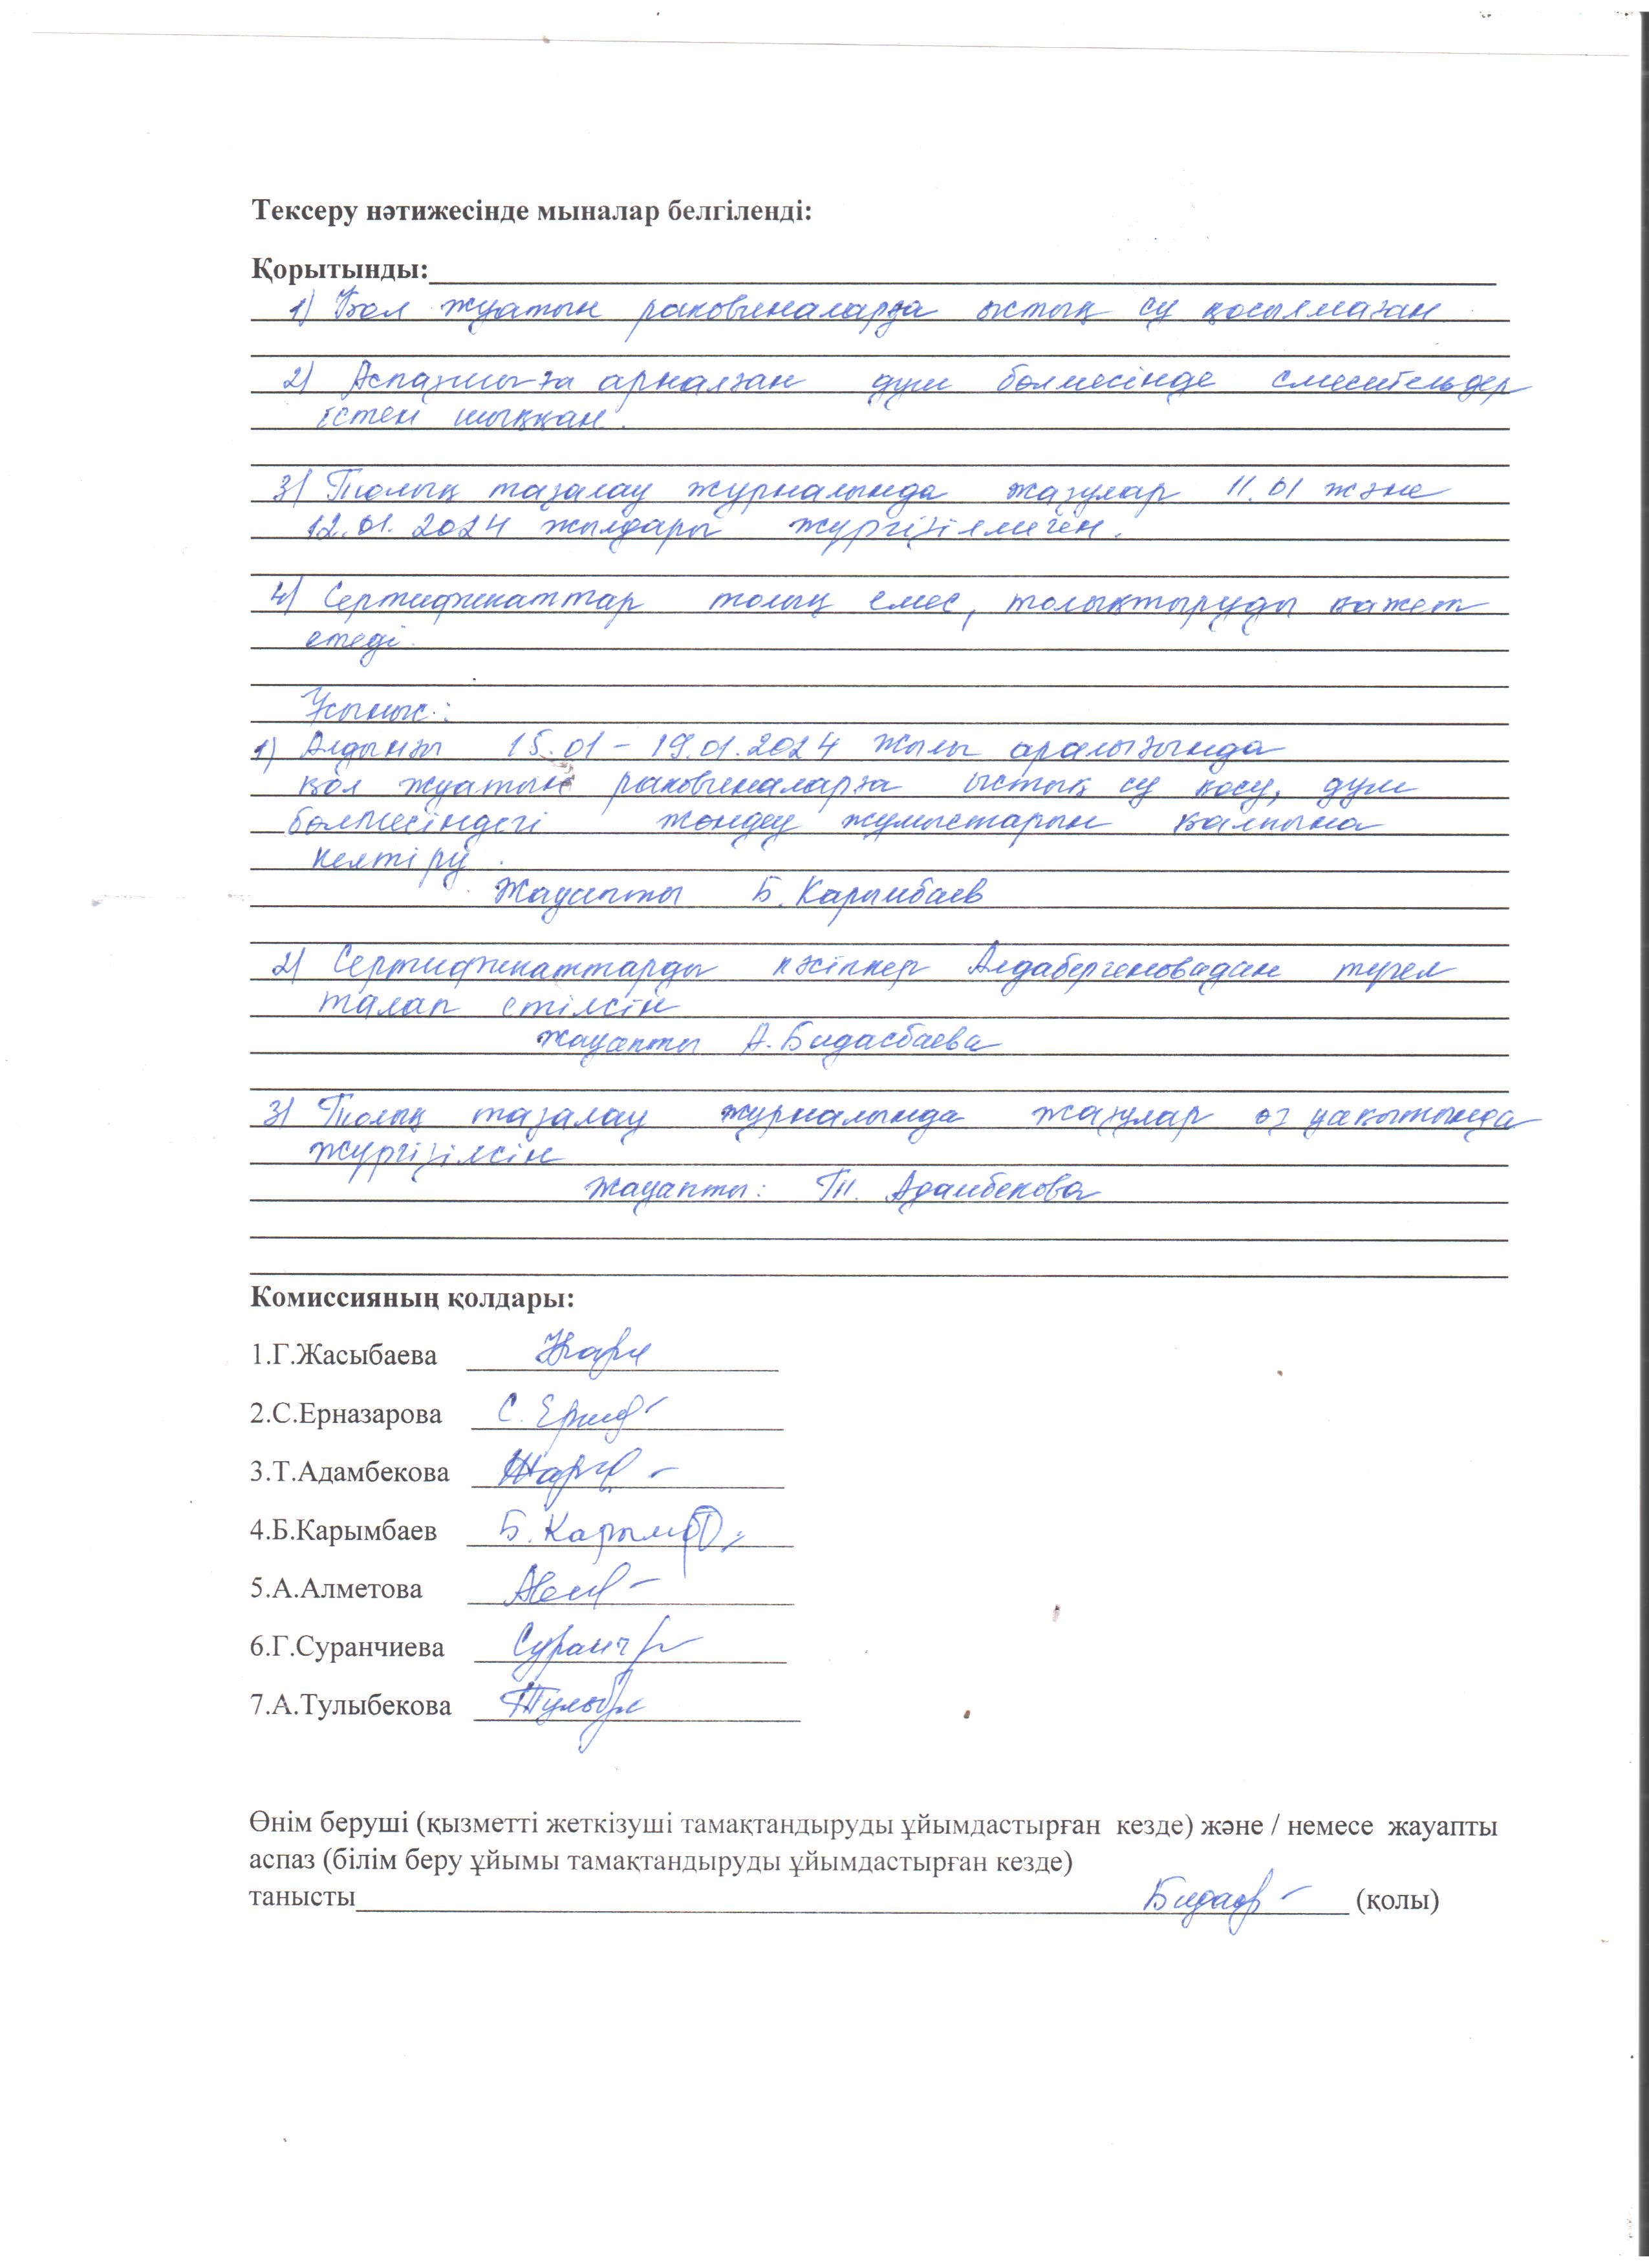 Тексеру нәтижесінде мыналар белгіленді:
Қорытынды:
1) Қол жуатын раковиналарға ыстық су қосылмаған
2) Аспазшыға арналған душ бөлмесінде смесительдер
істен шыққан.
3) Толық тазалау журналында жазулар 11.01 және
12.01.2024 жылдары жүргізілмеген.
4) Сертификаттар толық емес, толықтыруды қажет
етеді.
Ұсыныс:
1) Алдыңғы 15.01 – 19.01.2024 жылы аралығында
қол жуатын раковиналарға ыстық су қосу, душ
бөлмесіндегі жөндеу жұмыстарын қалпына
келтіру.
Жауапты Б. Карымбаев
2) Сертификаттарды кәсіпкер Алдабергеновадан түгел
талап етілсін
жауапты А. Бидасбаева
3) Толық тазалау журналында жазулар өз уақытында
жүргізілсін
жауапты: Т. Адамбекова
Комиссияның қолдары:
1.Г.Жасыбаева
2.С.Ерназарова
3.Т.Адамбекова
4.Б.Карымбаев Б. Карымб
5.А.Алметова
6.Г.Суранчиева
7.А.Тулыбекова
Өнім беруші (қызметті жеткізуші тамақтандыруды ұйымдастырған кезде) және / немесе жауапты
аспаз (білім беру ұйымы тамақтандыруды ұйымдастырған кезде)
танысты (қолы)